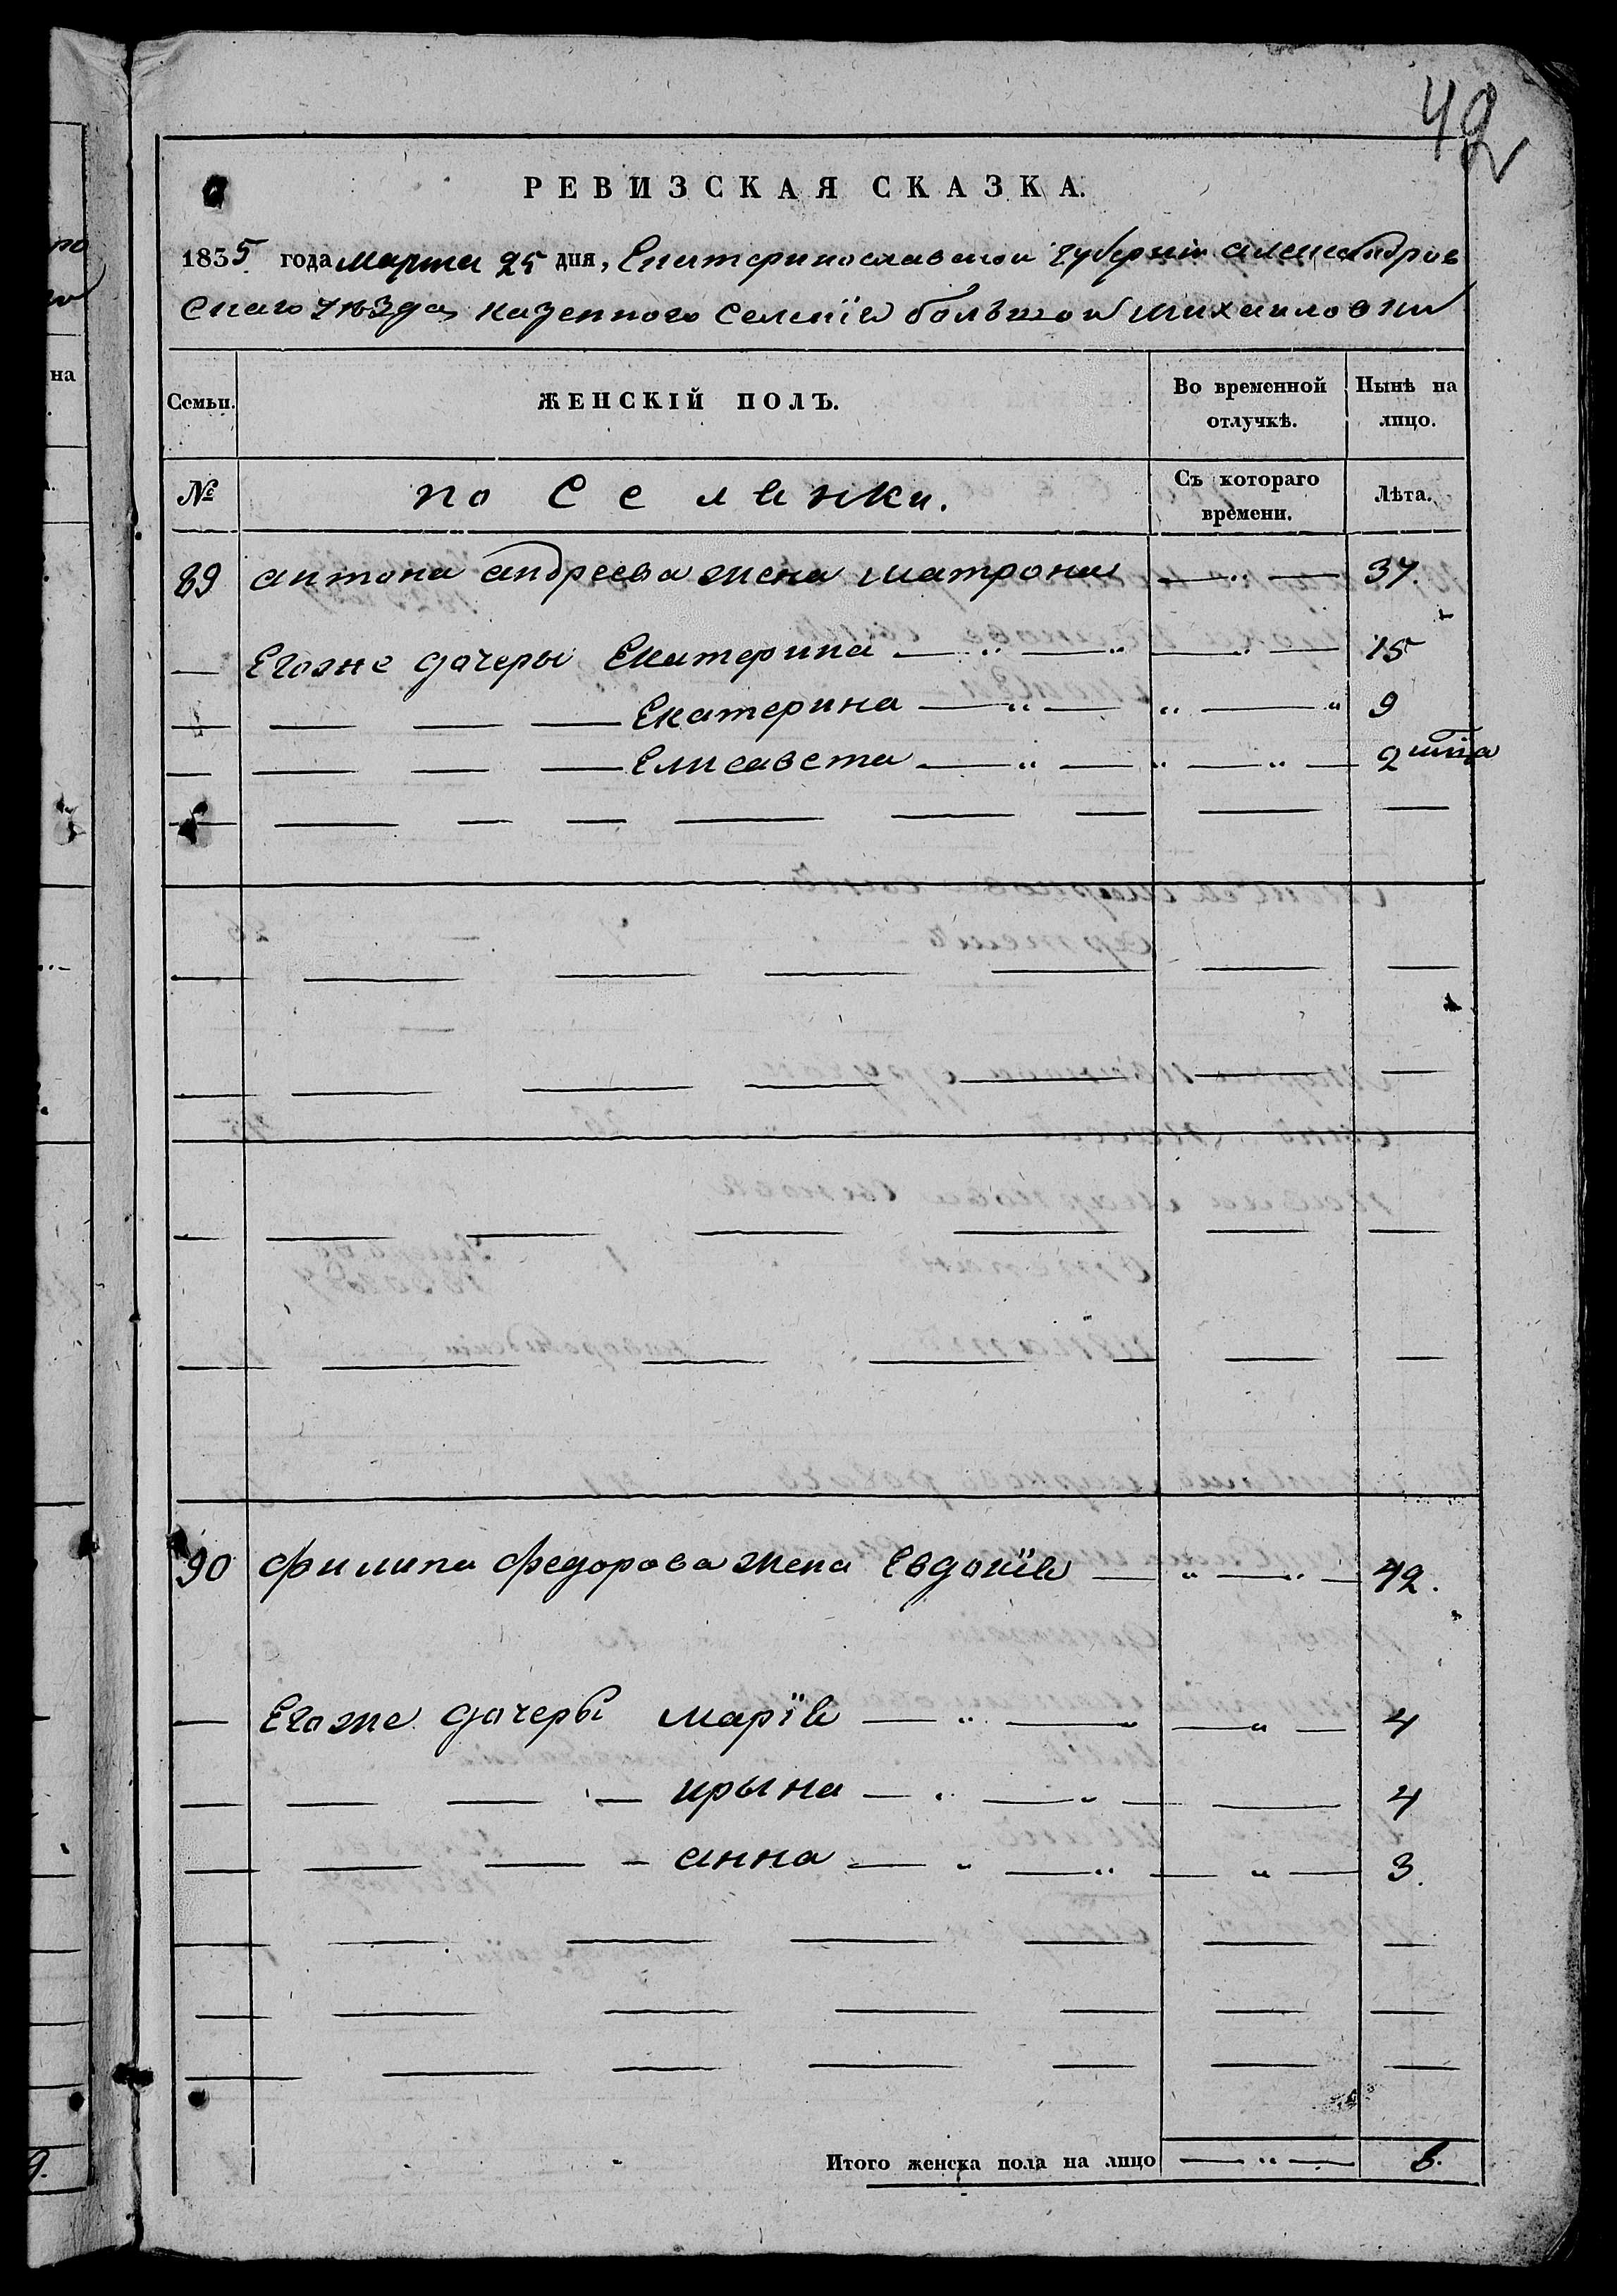 42
РЕВИЗСКАЯ СКАЗКА.
1835 года марта 25 дня, Екатеринославской губернии александров
скаго уѣзда казенного селенія большой михайловки
Семьи. ЖЕНСКІЙ ПОЛЪ. Во временной отлучкѣ. Нынѣ на лицо.
№ поселянки. Съ котораго времени. Лѣта.
89 антона андреева жена матрона — „ — 37.
— Егоже дочеры Екатерина — „ — „ — „ — 15
— — — — Екатерина — „ — „ — „ 9
— — — — Елисавета — „ — „ — „ — 2
90 филипа федорова жена Евдокія — „ — „ — 42.
— Егоже дочеры марія — „ — „ — „ — 4
— — — — ирына — „ — „ — — 4
— — — — анна — „ — „ — „ — 3.
Итого женска пола на лицо — „ — 8.
на